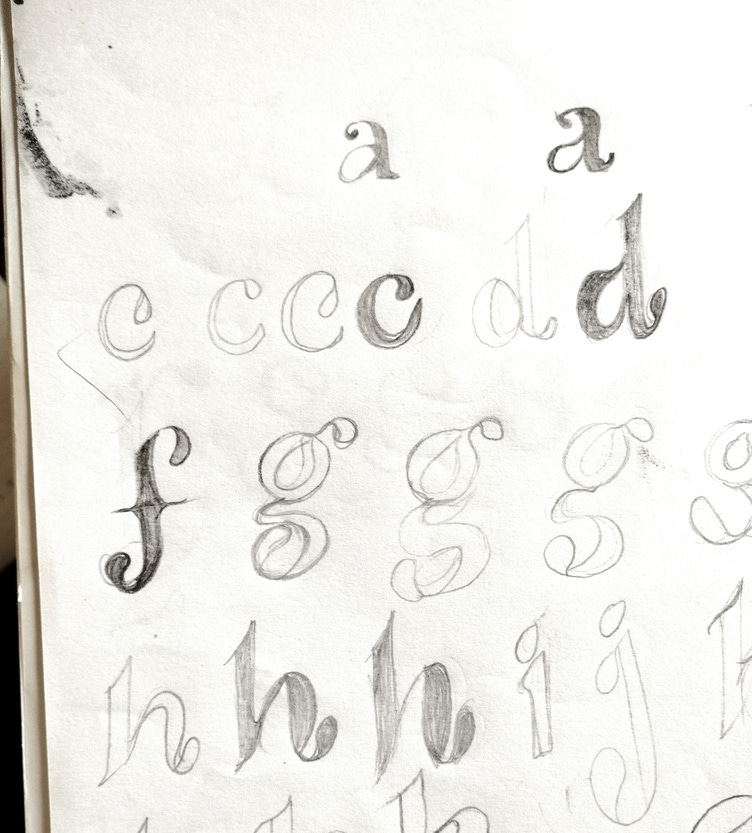 a a
c c c c d d
f g g g g
h h h i j